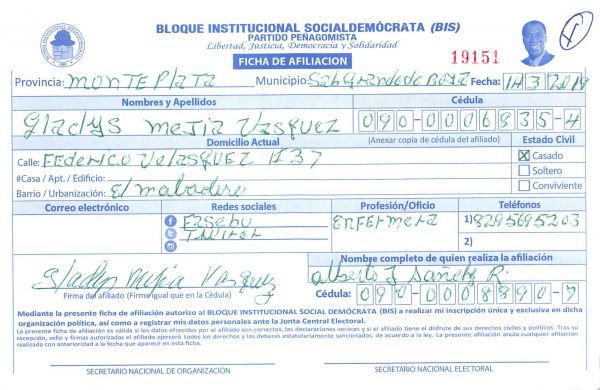 BLOQUE INSTITUCIONAL SOCIALDEMÓCRATA (BIS)
PARTIDO PEÑAGOMISTA
Libertad, Justicia, Democracia y Solidaridad
FICHA DE AFILIACION
19151
Provincia: MONTE PLATA Municipio: Sab Grande de Boya Fecha: 14 3 2019
Nombres y Apellidos Cédula
Gladys Mejia Vasquez 090-0006835-4
Domicilio Actual (Anexar copia de cédula del afiliado) Estado Civil
Calle: Federico Velasquez #37 X Casado
#Casa / Apt. / Edificio: Soltero
Barrio / Urbanización: El Matadero Conviviente
Correo electrónico Redes sociales Profesión/Oficio Teléfonos
ENFErMera 1) 8295695203
2)
Nombre completo de quien realiza la afiliación
Gladys Mejia Vasquez Alberto J Sanchez R.
Firma del afiliado (Firma igual que en la Cédula) Cédula: 090-0008890-7
Mediante la presente ficha de afiliación autorizo al BLOQUE INSTITUCIONAL SOCIAL DEMÓCRATA (BIS) a realizar mi inscripción única y exclusiva en dicha
organización política, así como a registrar mis datos personales ante la Junta Central Electoral.
La presente ficha de afiliación es válida si los datos ofrecidos por el afiliado son correctos, las declaraciones veraces y si el afiliado tiene el disfrute de sus derechos civiles y políticos. Tras su
recepción, sello y firmas autorizadas el afiliado ejercerá todos los derechos y los deberes estatutariamente sancionados, de acuerdo a la ley. La presente afiliación anula cualquier afiliación
realizada con anterioridad a la fecha que aparece en esta ficha.
SECRETARIO NACIONAL DE ORGANIZACIÓN SECRETARIO NACIONAL ELECTORAL